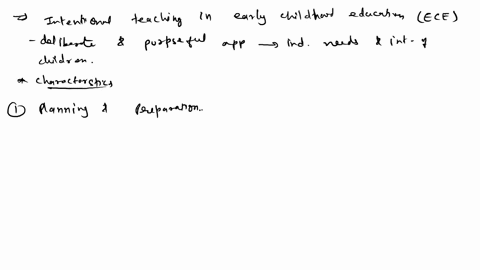 ⇒ Intentional teaching in early childhood education (ECE)
- deliberate & purposeful app → ind. needs & int - of
children.
* characteristics
① Planning & Preparation..